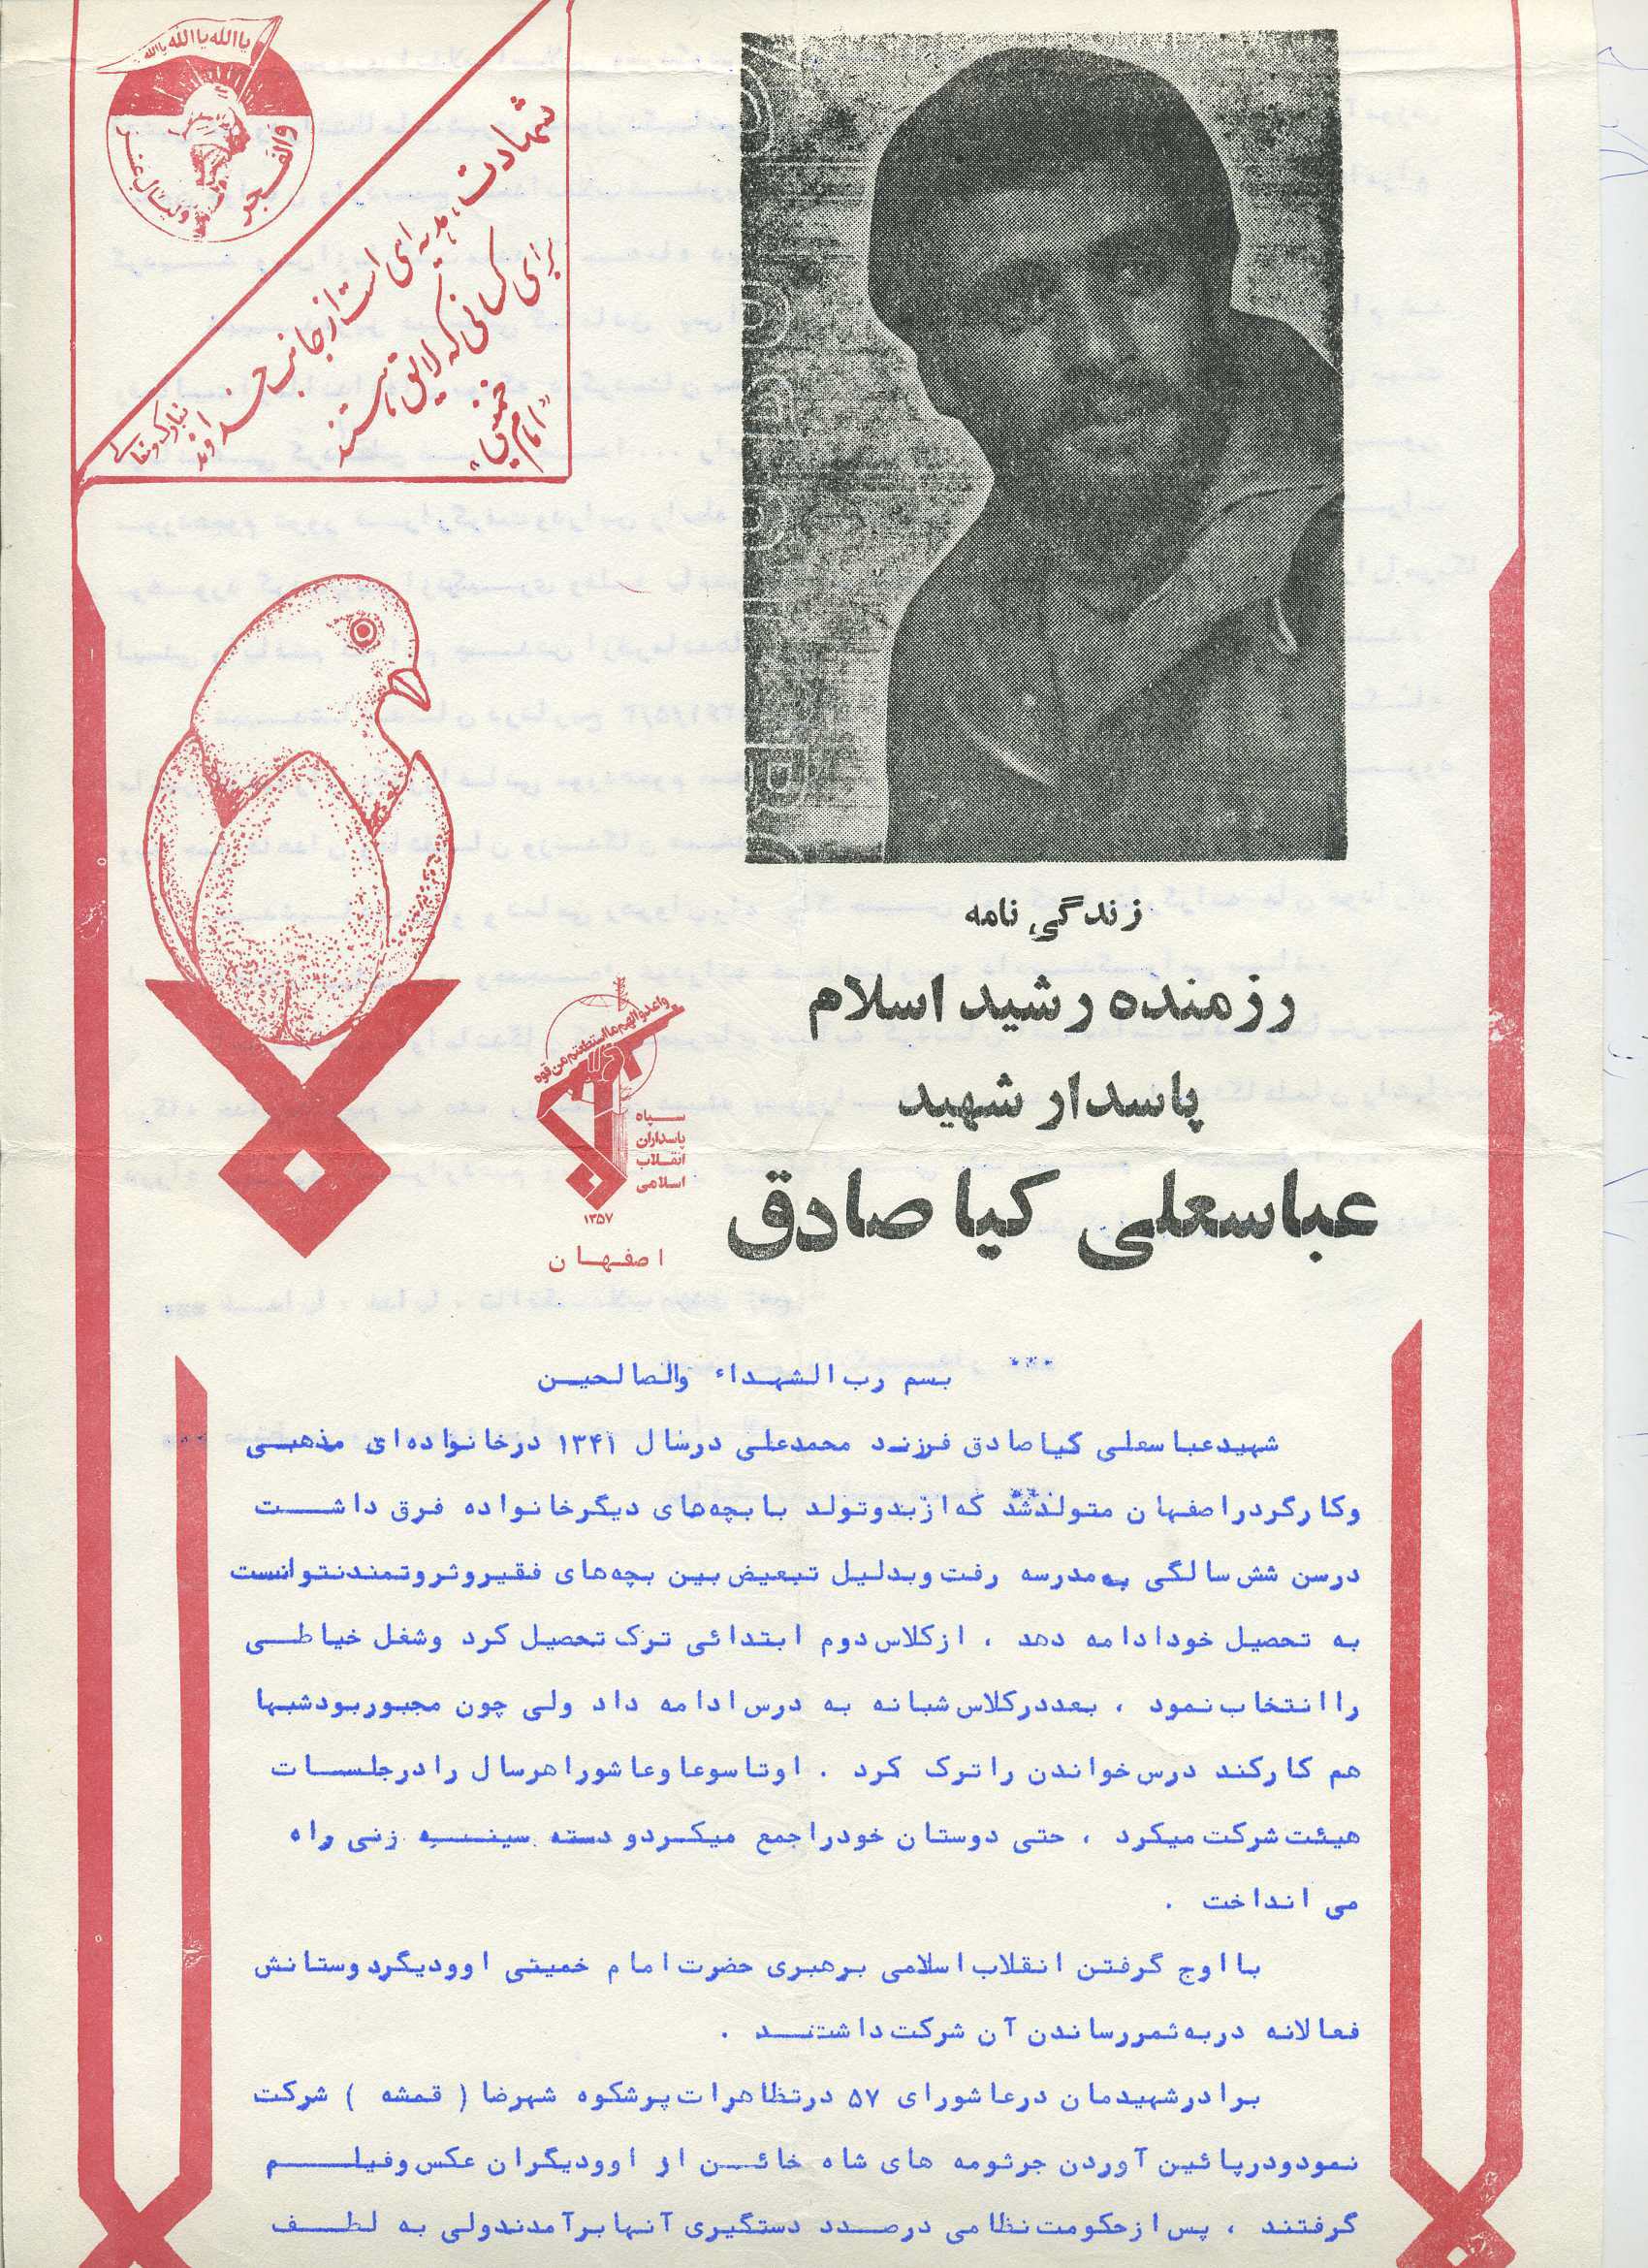 یاالله یاالله یاالله
والفجر
ولیال عشر
شهادت، هدیه ای است از جانب خداوند
تبارک و تعالی
برای کسانی که لایق هستند
"امام خمینی"
زندگی نامه
رزمنده رشید اسلام
پاسدار شهید
عباسعلی کیا صادق
واعدوا لهم ما استطعتم من قوه
سپاه
پاسداران
انقلاب
اسلامی
۱۳۵۷
اصفهان
بسم رب الشهداء والصالحین
شهیدعباسعلی کیاصادق فرزند محمدعلی درسال ۱۳۴۱ درخانواده‌ای مذهبی
وکارگردراصفهان متولدشد که‌ازبدوتولد بابچه‌های دیگرخانواده فرق داشت
درسن شش سالگی به‌مدرسه رفت وبدلیل تبعیض بین بچه‌های فقیروثروتمندنتوانست
به تحصیل خودادامه دهد ، ازکلاس دوم ابتدائی ترک تحصیل کرد وشغل خیاطی
راانتخاب نمود ، بعددرکلاس شبانه به درس ادامه داد ولی چون مجبوربودشبها
هم کارکند درس خواندن راترک کرد . اوتاسوعا وعاشوراهرسال رادرجلسات
هیئت شرکت میکرد ، حتی دوستان خودراجمع میکردو دسته سینه زنی راه
می انداخت .
بااوج گرفتن انقلاب اسلامی برهبری حضرت امام خمینی اوودیگردوستانش
فعالانه دربه‌ثمررساندن آن شرکت داشتند .
برادرشهیدمان درعاشورای ۵۷ درتظاهرات پرشکوه شهرضا ( قمشه ) شرکت
نمودودرپائین آوردن جرثومه های شاه خائن از اوودیگران عکس وفیلم
گرفتند ، پس ازحکومت نظامی درصدد دستگیری آنهابرآمدندولی به لطف